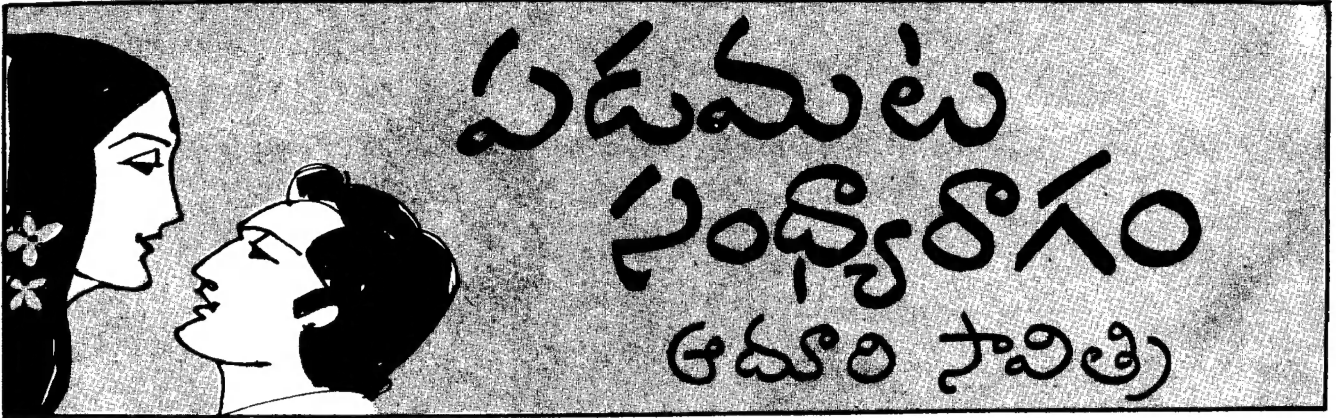 పడమట
సంధ్యారాగం
ఆదూరి సావిత్రి